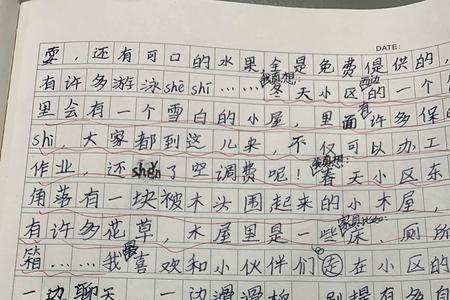 DATE:
耍，还有可口的水果全是免费提供的，
有许多游泳shè shī……冬天小区的一个
我真想：
西边
里会有一个雪白的小屋，里面有许多保
shī，大家都到这儿来，不仅可以办工
作业，还shěn了空调费呢！春天小区东
我真想：
角落有一块被木头围起来的小木屋，
有许多花草，木屋里是一些床，厕所
家具比如：
箱……我最喜欢和小伙伴们走在小区的
一边聊天 一边滑滑